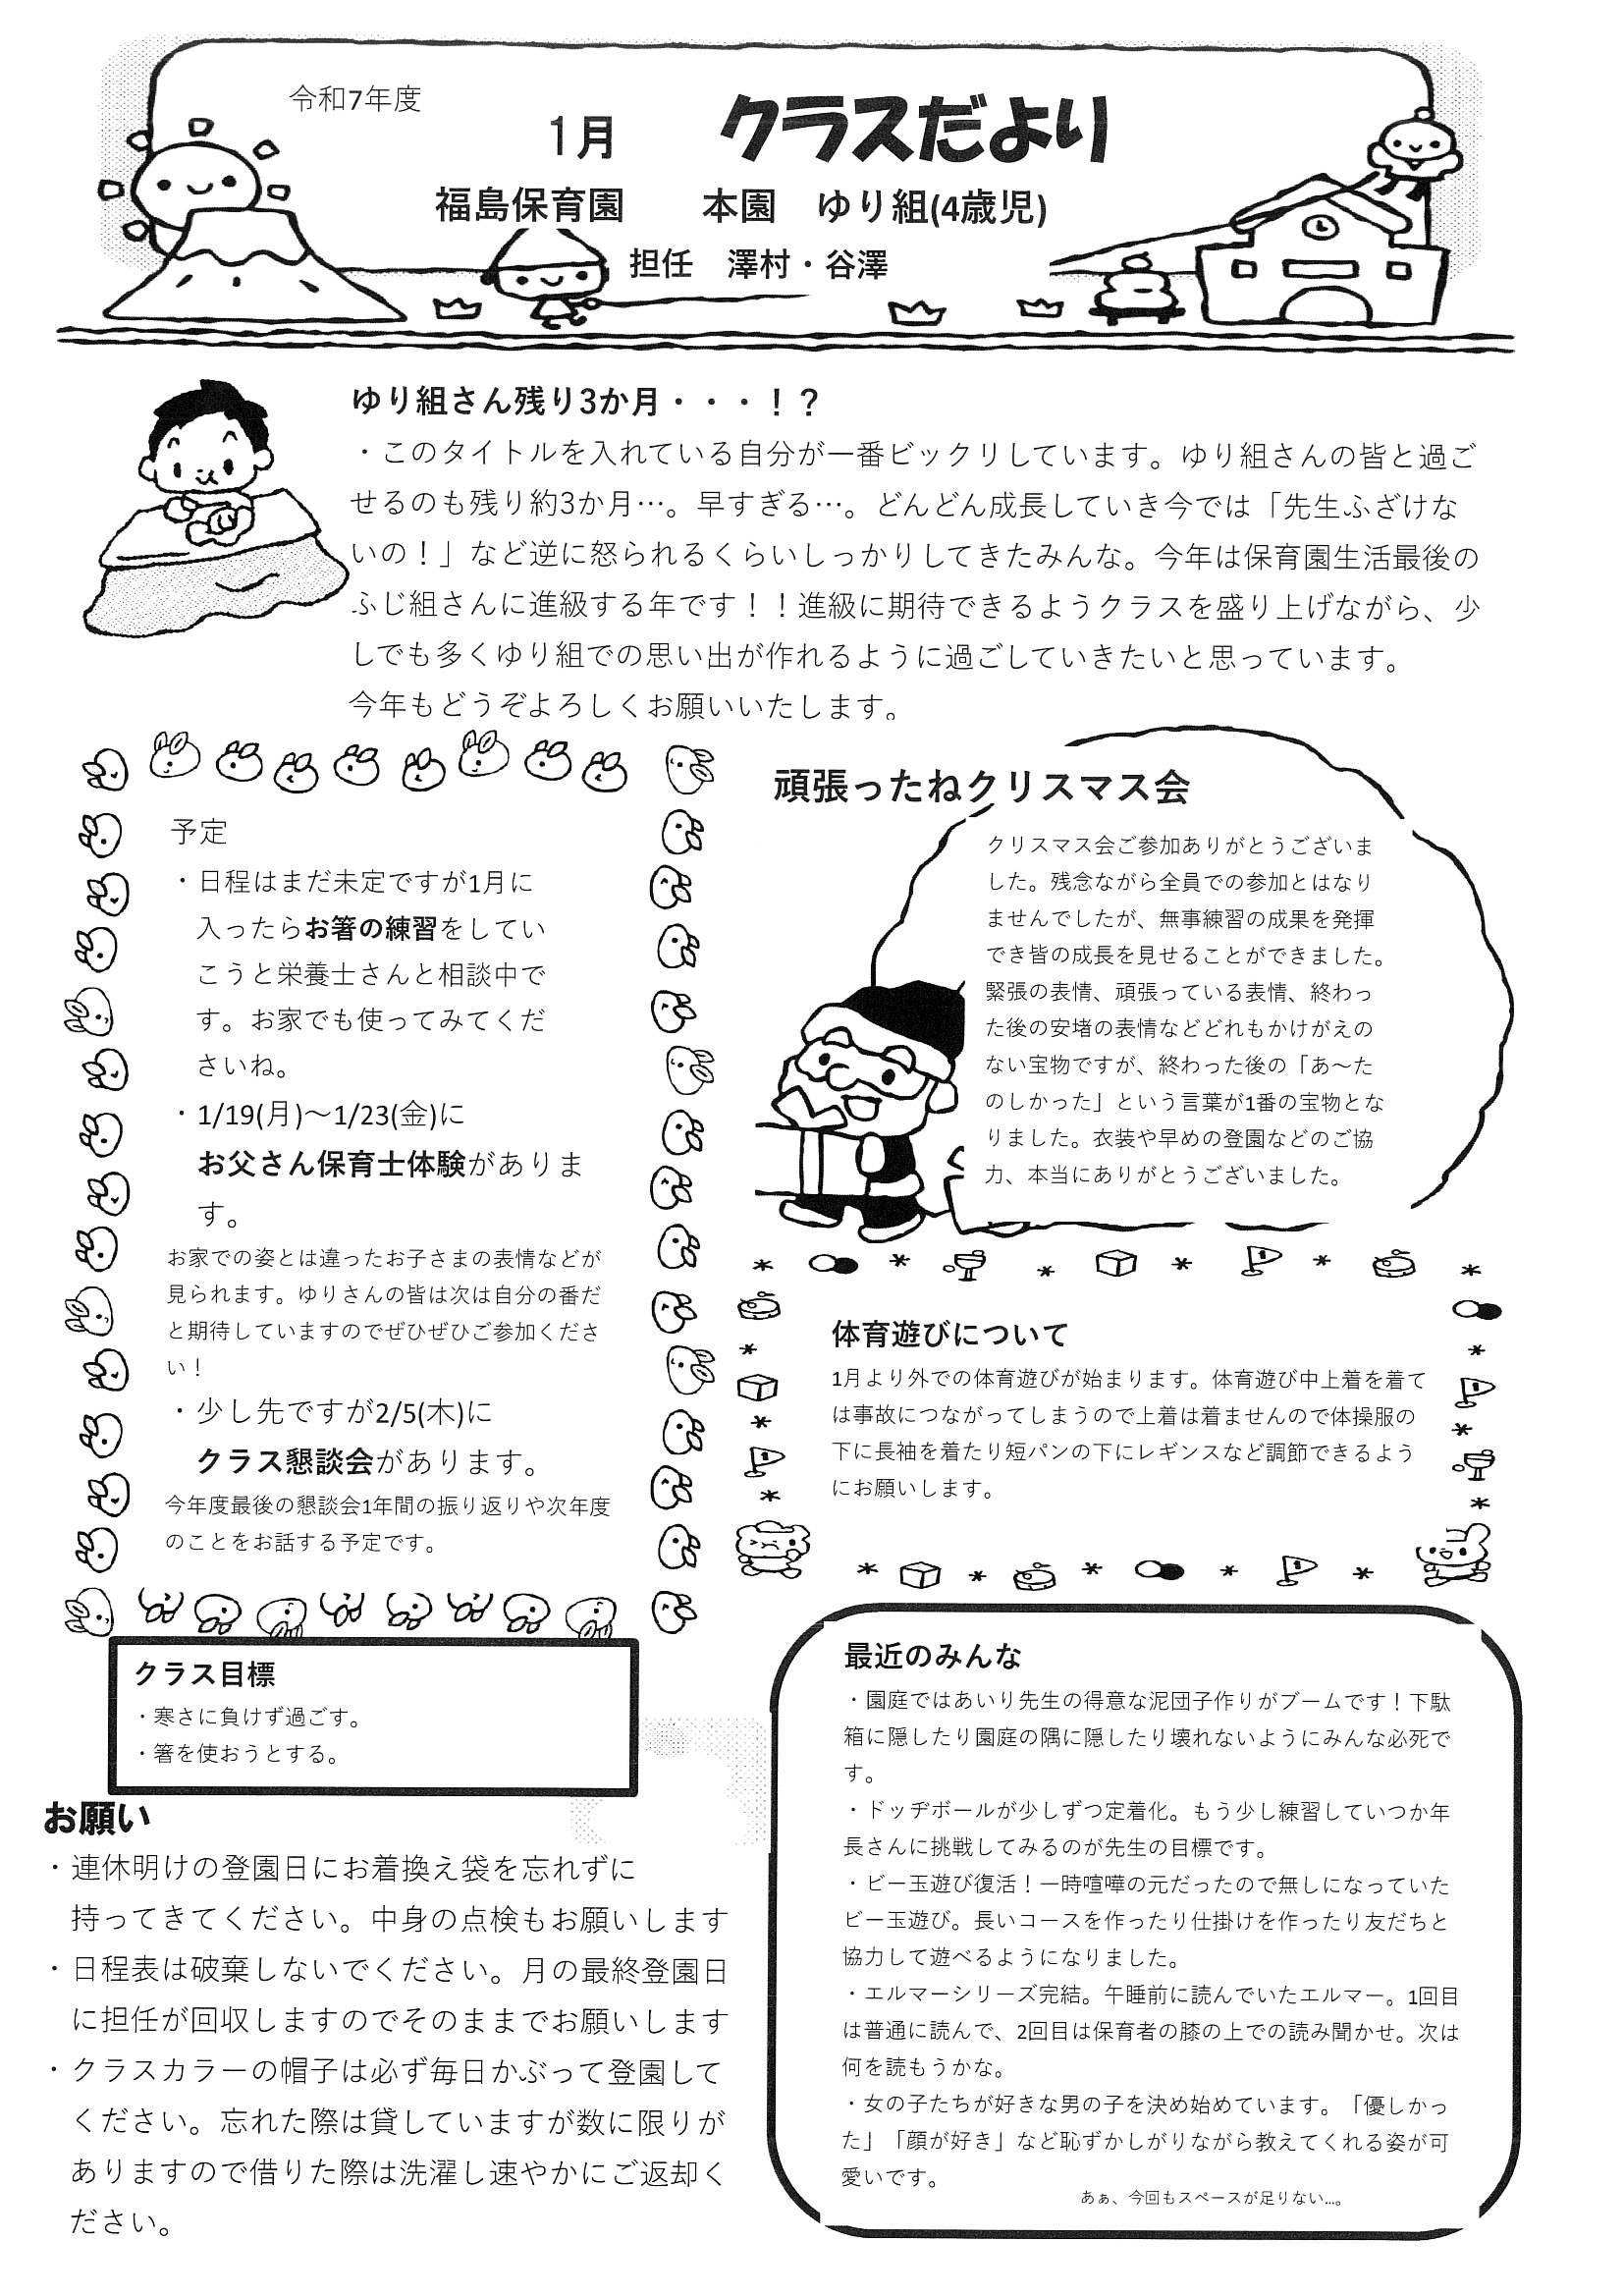 令和7年度
1月　クラスだより
福島保育園　本園　ゆり組(4歳児)
担任　澤村・谷澤
ゆり組さん残り3か月・・・！？
・このタイトルを入れている自分が一番ビックリしています。ゆり組さんの皆と過ご
せるのも残り約3か月…。早すぎる…。どんどん成長していき今では「先生ふざけな
いの！」など逆に怒られるくらいしっかりしてきたみんな。今年は保育園生活最後の
ふじ組さんに進級する年です！！進級に期待できるようクラスを盛り上げながら、少
しでも多くゆり組での思い出が作れるように過ごしていきたいと思っています。
今年もどうぞよろしくお願いいたします。
予定
・日程はまだ未定ですが1月に
入ったらお箸の練習をしてい
こうと栄養士さんと相談中で
す。お家でも使ってみてくだ
さいね。
・1/19(月)～1/23(金)に
お父さん保育士体験がありま
す。
お家での姿とは違ったお子さまの表情などが
見られます。ゆりさんの皆は次は自分の番だ
と期待していますのでぜひぜひご参加くださ
い！
・少し先ですが2/5(木)に
クラス懇談会があります。
今年度最後の懇談会1年間の振り返りや次年度
のことをお話する予定です。
頑張ったねクリスマス会
クリスマス会ご参加ありがとうございま
した。残念ながら全員での参加とはなり
ませんでしたが、無事練習の成果を発揮
でき皆の成長を見せることができました。
緊張の表情、頑張っている表情、終わっ
た後の安堵の表情などどれもかけがえの
ない宝物ですが、終わった後の「あ～た
のしかった」という言葉が1番の宝物とな
りました。衣装や早めの登園などのご協
力、本当にありがとうございました。
体育遊びについて
1月より外での体育遊びが始まります。体育遊び中上着を着て
は事故につながってしまうので上着は着ませんので体操服の
下に長袖を着たり短パンの下にレギンスなど調節できるよう
にお願いします。
クラス目標
・寒さに負けず過ごす。
・箸を使おうとする。
お願い
・連休明けの登園日にお着換え袋を忘れずに
持ってきてください。中身の点検もお願いします
・日程表は破棄しないでください。月の最終登園日
に担任が回収しますのでそのままでお願いします
・クラスカラーの帽子は必ず毎日かぶって登園して
ください。忘れた際は貸していますが数に限りが
ありますので借りた際は洗濯し速やかにご返却く
ださい。
最近のみんな
・園庭ではあいり先生の得意な泥団子作りがブームです！下駄
箱に隠したり園庭の隅に隠したり壊れないようにみんな必死で
す。
・ドッヂボールが少しずつ定着化。もう少し練習していつか年
長さんに挑戦してみるのが先生の目標です。
・ビー玉遊び復活！一時喧嘩の元だったので無しになっていた
ビー玉遊び。長いコースを作ったり仕掛けを作ったり友だちと
協力して遊べるようになりました。
・エルマーシリーズ完結。午睡前に読んでいたエルマー。1回目
は普通に読んで、2回目は保育者の膝の上での読み聞かせ。次は
何を読もうかな。
・女の子たちが好きな男の子を決め始めています。「優しかっ
た」「顔が好き」など恥ずかしがりながら教えてくれる姿が可
愛いです。
あぁ、今回もスペースが足りない…。